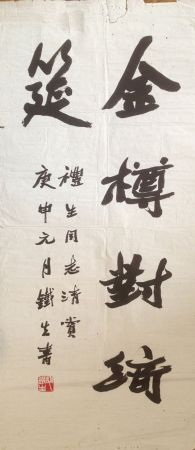 金樽對綺
筵
禮生同志清賞
庚申元月鐵生書